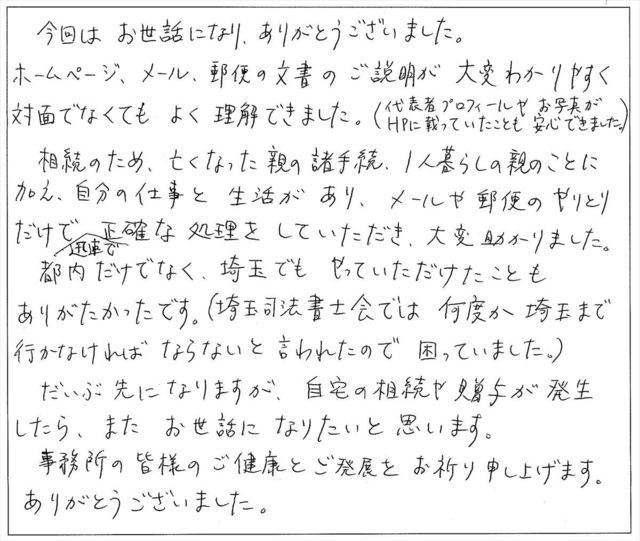 今回は お世話になり、ありがとうございました。
ホームページ、メール、郵便の文書の ご説明が 大変わかりやすく
対面でなくても よく 理解できました。(代表者プロフィールや お写真が
HPに載っていたことも 安心できました。)
相続のため、亡くなった親の諸手続、1人暮らしの親のことに
加え、自分の仕事と 生活が あり、メールや郵便の やりとり
だけで 迅速で正確な 処理を していただき、大変助かりました。
都内だけでなく、埼玉でも やっていただけたことも
ありがたかったです。(埼玉司法書士会では 何度か 埼玉まで
行かなければ ならないと 言われたので 困っていました。)
だいぶ 先になりますが、自宅の相続や贈与が 発生
したら、また お世話に なりたいと 思います。
事務所の 皆様の ご健康と ご発展を お祈り申し上げます。
ありがとうございました。